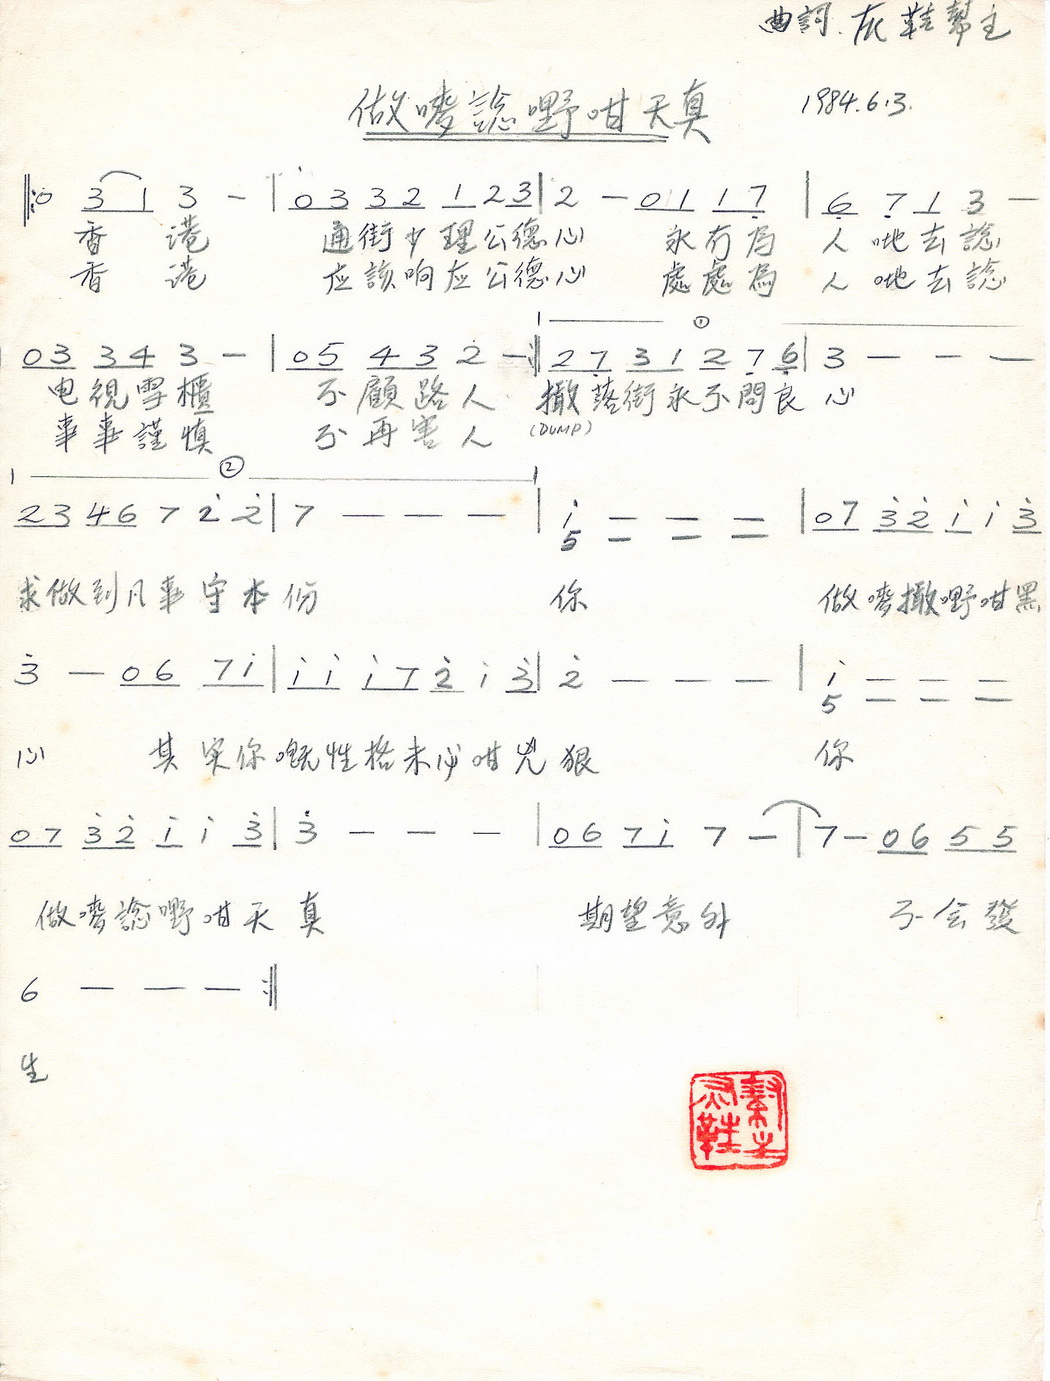 曲詞.灰鞋幫主
做嘜諗嘢咁天真
1984.6.3.
0 3 1 3 - | 0 3 3 2 1 2 3 | 2 - 0 1 1 7 | 6 7 1 3 -
香 港 通街少理公德心 永冇為 人哋去諗
香 港 应該响应公德心 處處為 人哋去諗
①
0 3 3 4 3 - | 0 5 4 3 2 - | 2 7 3 1 2 7 6 | 3 - - -
电視雪櫃 不顧路人 撒落街永不問良 心
事事謹慎 不再害人 (DUMP)
②
2 3 4 6 7 2 2 | 7 - - - | i - - - | 0 7 3 2 i i 3
5 - - -
求做到凡事守本份 你 做嘜撒嘢咁黑
3 - 0 6 7 i | i i i 7 2 i 3 | 2 - - - | i - - -
5 - - -
心 其实你嘅性格未必咁兇狠 你
0 7 3 2 i i 3 | 3 - - - | 0 6 7 i 7 - | 7 - 0 6 5 5
做嘜諗嘢咁天真 期望意外 不会發
6 - - -
生
灰鞋幫主